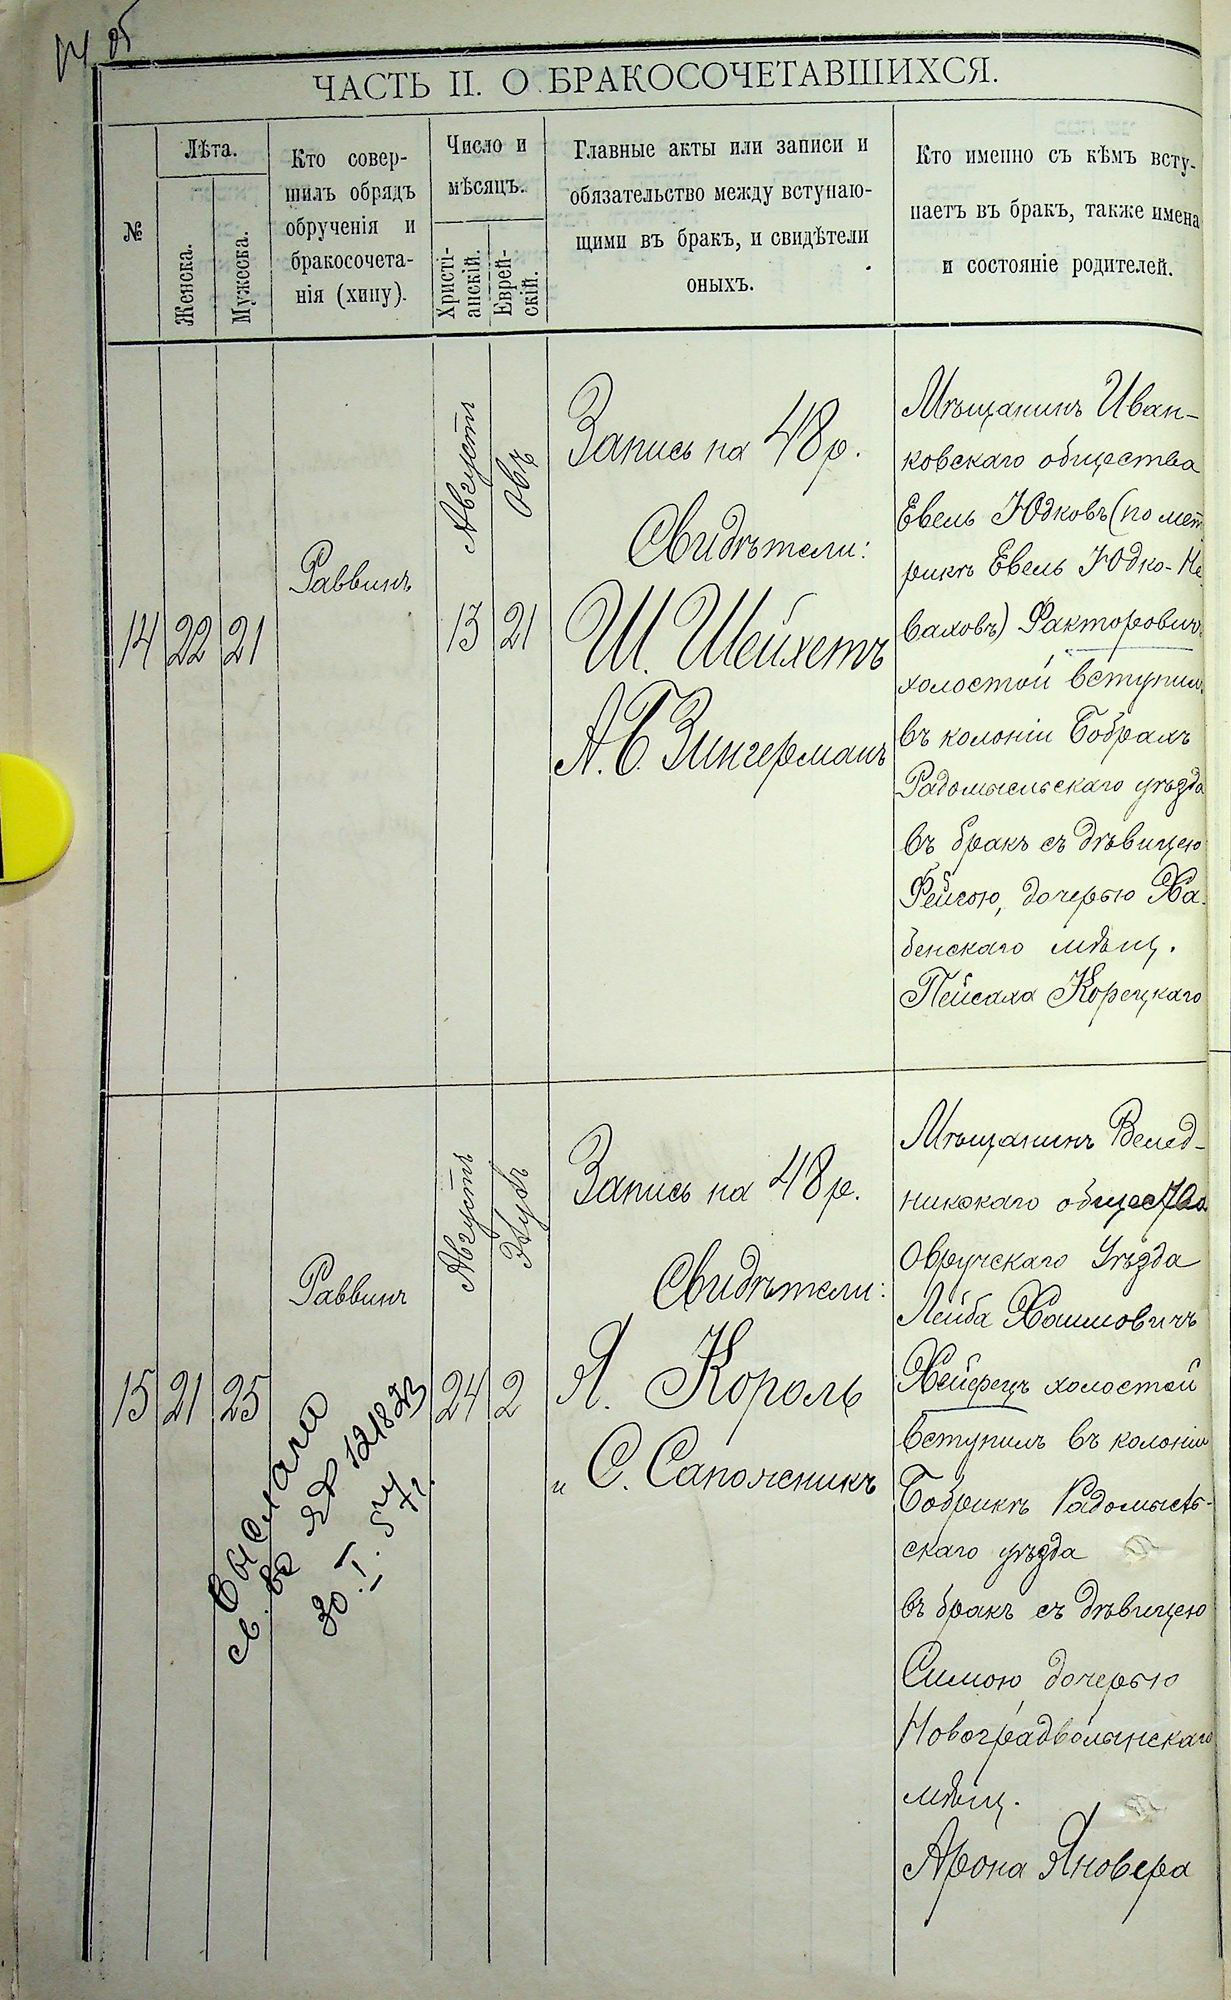 ЧАСТЬ II. О БРАКОСОЧЕТАВШИХСЯ.
№
Лѣта.
Женска.
Мужеска.
Кто совер-
шилъ обрядъ
обрученія и
бракосочета-
нія (хипу).
Число и
мѣсяцъ.
Христі-
анскій.
Еврей-
скій.
Главные акты или записи и
обязательство между вступаю-
щими въ бракъ, и свидѣтели
оныхъ.
Кто именно съ кѣмъ всту-
паетъ въ бракъ, также имена
и состояніе родителей.
14
22
21
Раввинъ
Августъ
13
Овъ
21
Запись на 48 р.
Свидѣтели:
Ш. Шейхетъ
А. Б. Зингерманъ
Мѣщанинъ Иван-
ковскаго общества
Евель Юдковъ (по мет
рикѣ Евель Юдко-Не
ваховъ) Факторовичъ
холостой вступил
въ колоніи Бобрахъ
Радомысльскаго уѣзда
въ бракъ съ дѣвицею
Фейгою, дочерью Ха-
бенскаго мѣщ.
Пейсаха Корецкаго
15
21
25
Раввинъ
Августъ
24
Элулъ
2
Запись на 48 р.
Свидѣтели:
Я. Король
и С. Сапожникъ
Мѣщанинъ Велед-
никскаго общества
Овручскаго Уѣзда
Лейба Хаимовичъ
Хейфецъ холостой
вступилъ въ колоніи
Бобрикѣ Радомысль-
скаго уѣзда
въ бракъ съ дѣвицею
Симою дочерью
Новоградволынскаго
мѣщ.
Арона Яновера
выслано
30. I. 57 г.